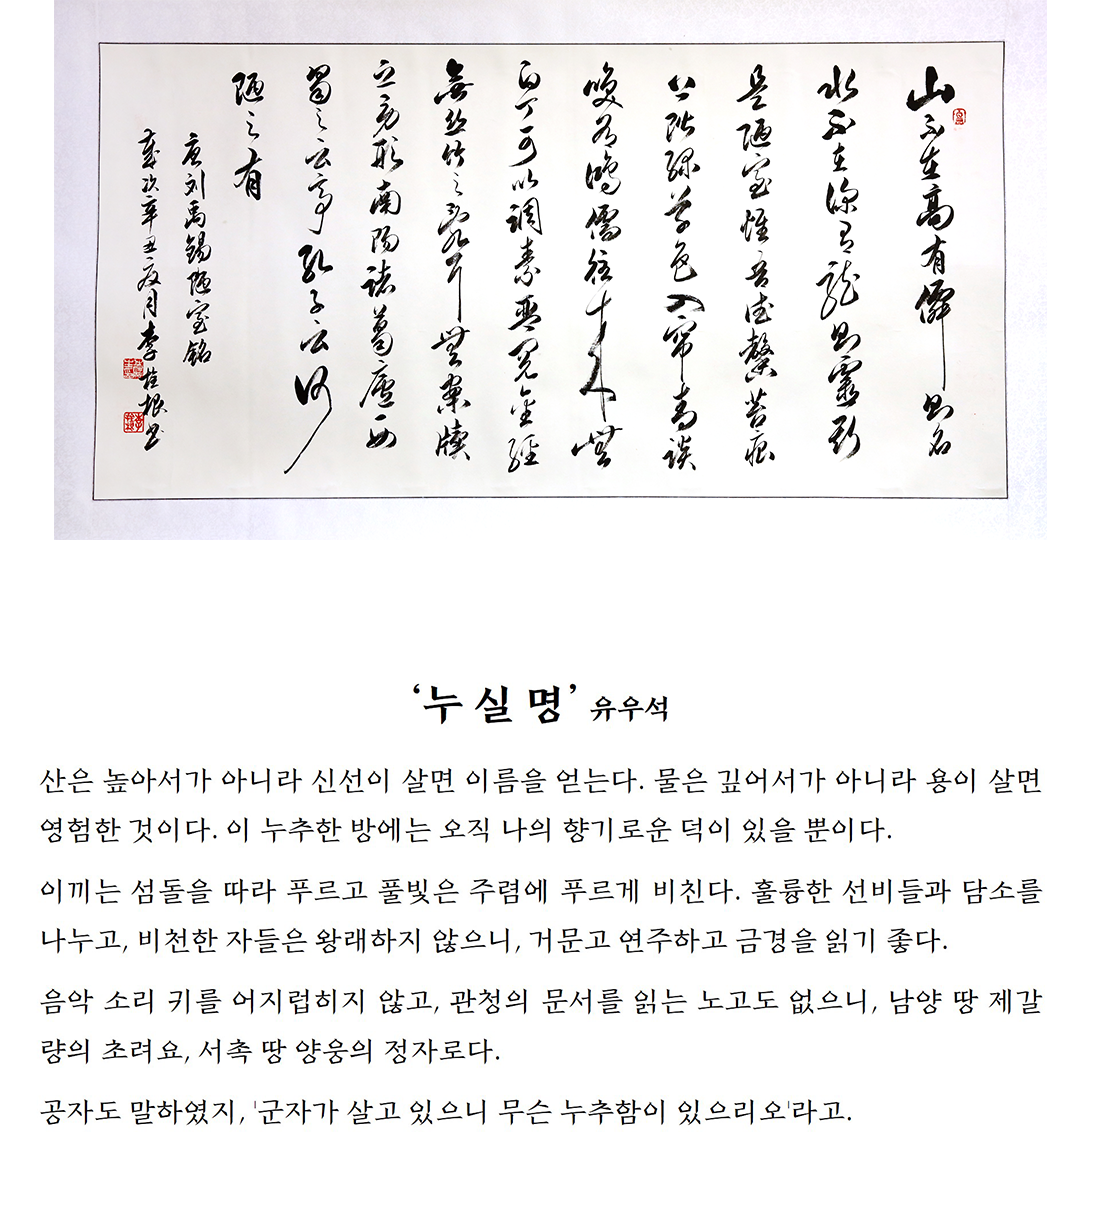 山不在高有僊則名
水不在深有龍則靈斯
是陋室惟吾德馨苔痕
上階綠草色入帘青談
咲有鴻儒往来無
白丁可以調素琴閱金經
無丝竹之亂耳無案牘
之勞形南陽諸葛廬西
蜀之云亭孔子云何
陋之有
唐刘禹錫陋室銘
歲次辛丑夏月李根书
‘누 실 명’ 유우석
산은 높아서가 아니라 신선이 살면 이름을 얻는다. 물은 깊어서가 아니라 용이 살면
영험한 것이다. 이 누추한 방에는 오직 나의 향기로운 덕이 있을 뿐이다.
이끼는 섬돌을 따라 푸르고 풀빛은 주렴에 푸르게 비친다. 훌륭한 선비들과 담소를
나누고, 비천한 자들은 왕래하지 않으니, 거문고 연주하고 금경을 읽기 좋다.
음악 소리 키를 어지럽히지 않고, 관청의 문서를 읽는 노고도 없으니, 남양 땅 제갈
량의 초려요, 서촉 땅 양웅의 정자로다.
공자도 말하였지, '군자가 살고 있으니 무슨 누추함이 있으리오'라고.